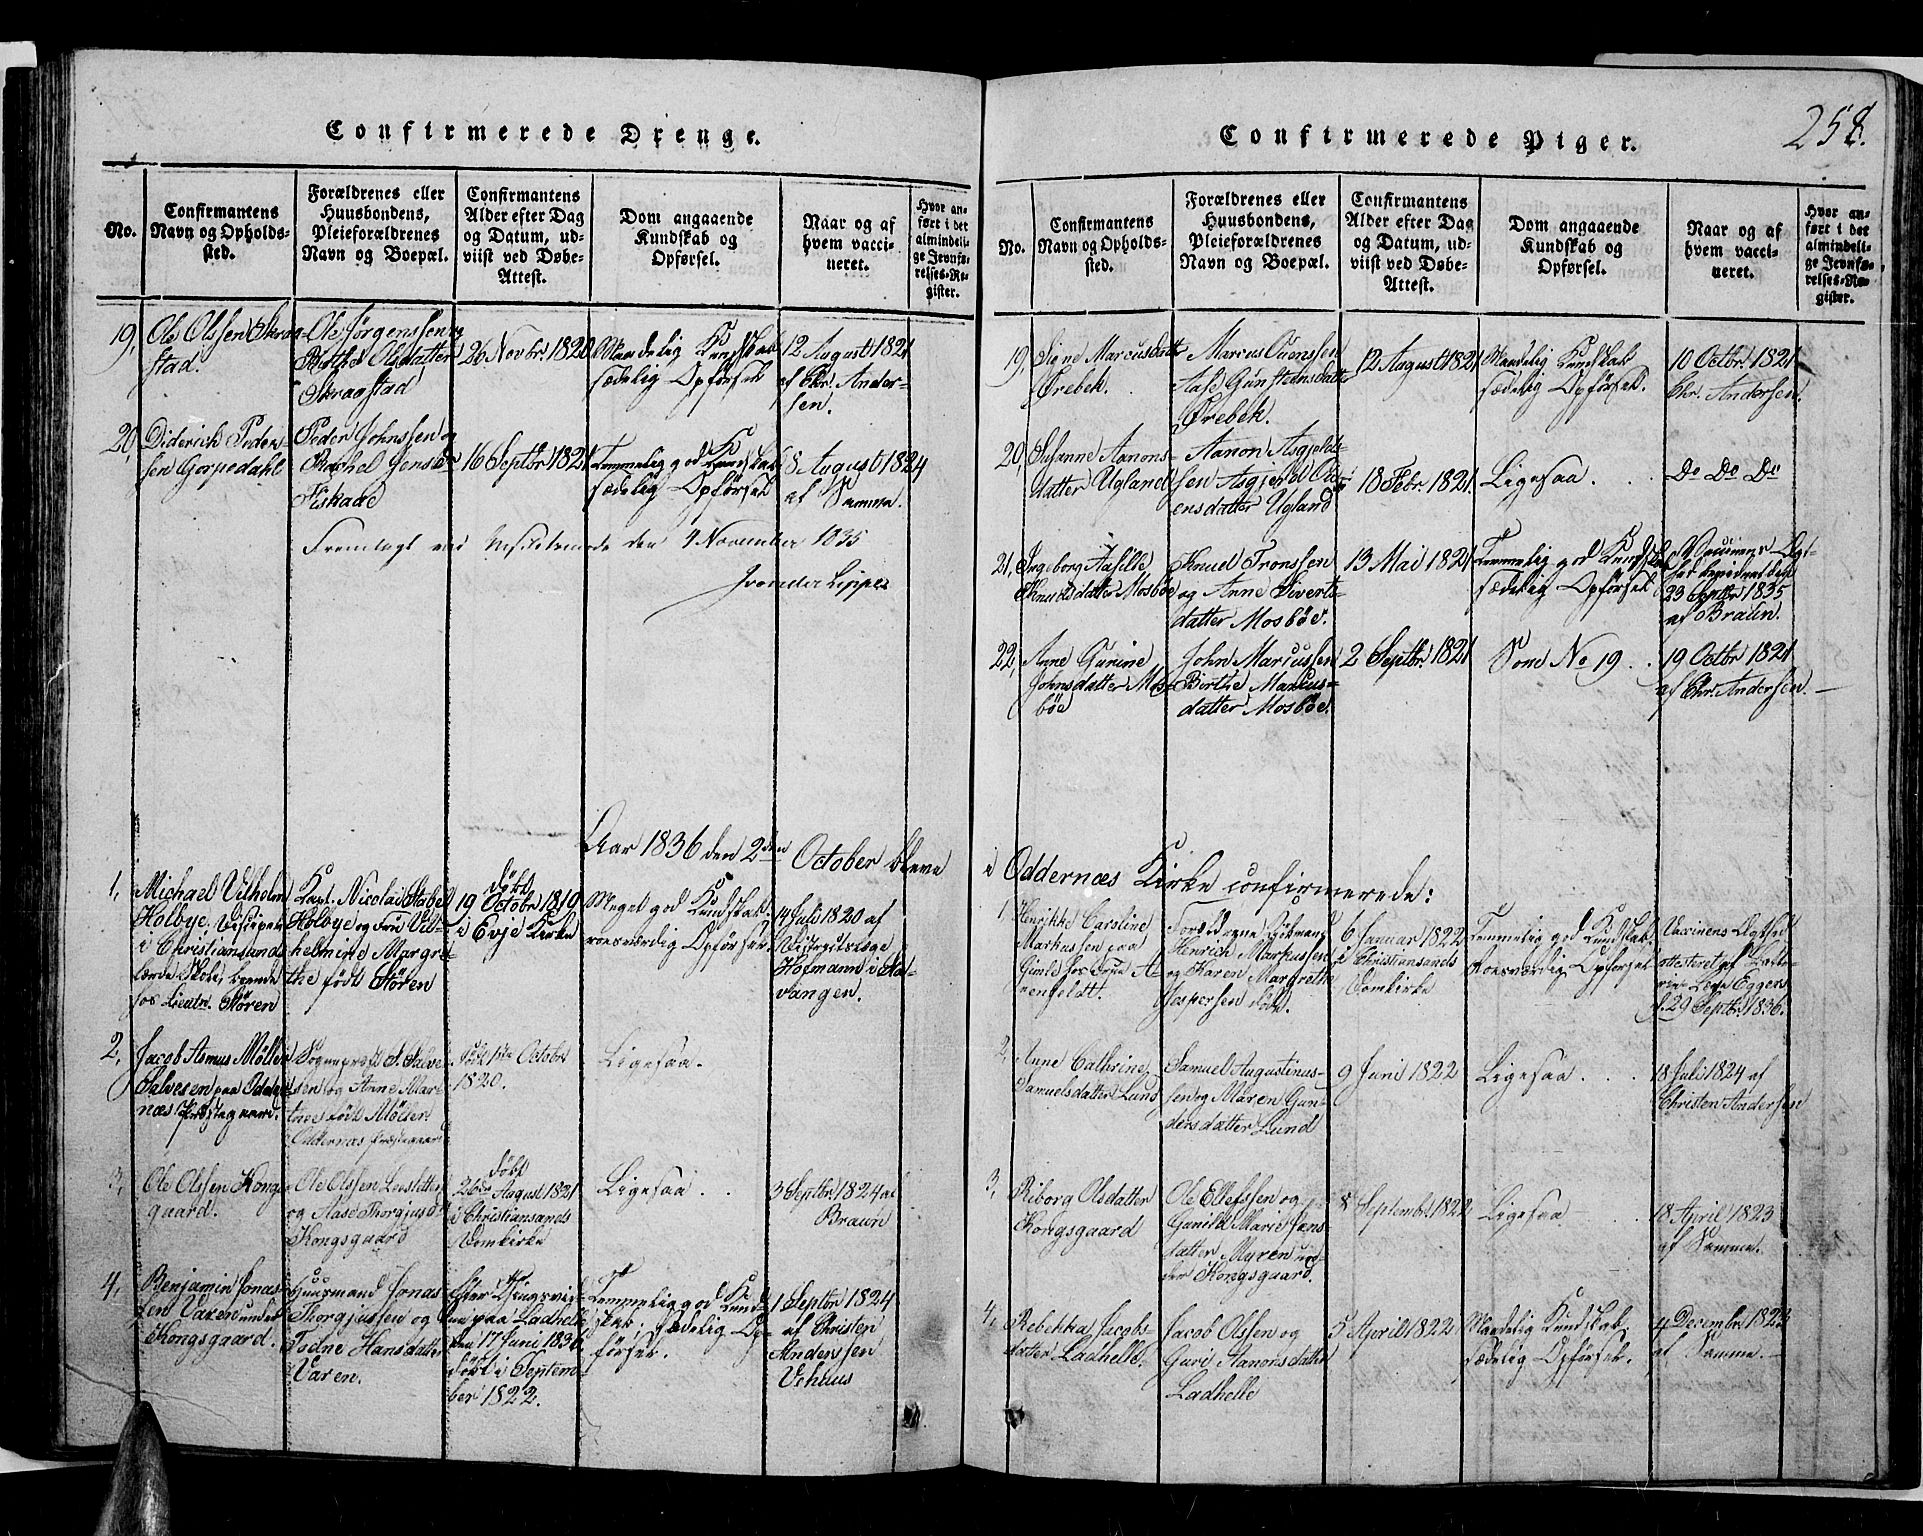 258.
Confirmerede Drenge.
No.
Confirmantens
Navn og Opholds-
sted.
Forældrenes eller
Huusbondens,
Pleieforældrenes
Navn og Boepæl.
Confirmantens
Alder efter Dag
og Datum, ud-
viist ved Døbe-
Attest.
Dom angaaende
Kundskab og
Opførsel.
Naar og af
hvem vacci-
neret.
Hvor an-
ført i det
almindeli-
ge Jevnfø-
relses-Re-
gister.
19,
Ole Olssen Skraa-
stad.
Ole Jørgenssen og
Berthe Olsdatter
Skraastad
26 Novbr. 1820
Maadelig Kundskab
sædelig Opførsel
12 August 1821
af Chr. Ander-
sen.
20,
Diderich Peders-
sen Gorpedahl
Peder Johnssen og
Rachel Jensdr
Fiskaae
16 Septbr 1821
Temmelig god Kundskab
sædelig Opførsel
8 August 1824
af Samme.
Fremlagt ved Visitetsmøde den 4 November 1835
Aar 1836 den 2den October bleve
1,
Michael Vilhelm
Holbye, Discipel
i Christiansands
lærde Skole, boende
hos Lieutn. Støren
Capt. Nicolai Stabel
Holbye og Frue Vil-
helmine Margre-
the født Støren
døbt
19 Octobr 1819
i Evje Kirke
Meget god Kundskab.
roesværdig Opførsel.
14 Juli 1820 af
Districtslæge
Hofmann i Aa-
vangen.
2,
Jacob Asmus Møller
Salvesen paa Odder-
næs Præstegaard.
Sogneprest S. Salve-
sen og Anne Mar-
the født Møller.
Oddernæs Præstegaard
født 1ste Octobr
1820.
Ligesaa.
3,
Ole Olssen Kongs-
gaard.
Ole Olssen
og Aase Thorgjusdr
Kongsgaard
døbt
26de August 1821
i Christiansands
Domkirke
Ligesaa . .
3 Septbr. 1824 af
Braun
4,
Benjamin Jonas-
sen Varen under
Kongsgaard.
Huusmand Jonas
Thorgjussen og
Todne Hansdatter
Varen.
paa Ladhelle
den 17 Juni 1836
døbt i Septem-
ber 1822.
Temmelig god Kund-
skab. sædelig Op-
førsel.
1 Septbr 1824
af Christen
Anderssen
Vehuus
Confirmerede Piger.
No.
Confirmantens
Navn og Opholds-
sted.
Forældrenes eller
Huusbondens,
Pleieforældrenes
Navn og Boepæl.
Confirmantens
Alder efter Dag
og Datum, ud-
viist ved Døbe-
Attest.
Dom angaaende
Kundskab og
Opførsel.
Naar og af
hvem vacci-
neret.
Hvor an-
ført i det
almindeli-
ge Jevnfø-
relses-Re-
gister.
19,
Siene Marcusdatt
Ørebek.
Marcus Ouonssen
Aase Gunsteensdatt
Ørebek.
12 August 1821
Maadelig Kundskab
sædelig Opførsel.
10 Octbr. 1821
Chr. Andersen.
20,
Susanne Aanons-
datter Ugland
Aanon Asgjelds-
sen Asgjerd Ole-
ensdatter Ugland
18 Febr. 1821.
Ligesaa. . .
Do Do Do
21,
Ingeborg Aasille
Knudsdatter Mosbøe
Knud Tronssen
og Anne Siverts-
datter Mosbøe.
13 Mai 1821
Temmelig god Kundskab
sædelig Opførsel
23 Septbr. 1835
af Braun.
22,
Anne Gurine
Johnsdatter Mos-
bøe
John Marcussen
Berthe Marcus-
datter Mosbøe.
2 Septbr 1821
Som No 19. .
19 Octbr 1821
af Chr. Andersen.
i Oddernæs Kirke confirmerede:
1,
Henrikke Caroline
Markussen paa
Gimle hos Frue A-
renfeldt.
Henrich Markussen
og Karen Margrethe
Jespersen
6 Januar 1822
i Christiansands
Domkirke
Temmelig god Kundskab
Roesværdig Opførsel
Vaccinens Ægthed
attesteret af Batte-
rie Læge Eggers
d. 29 Septbr. 1836.
2,
Anne Cathrine
Samuelsdatter Lund
Samuel Augustinus-
sen og Maren Gun-
dersdatter Lund
9 Juni 1822
Ligesaa . . .
18 Juli 1824 af
Christen Andersen
3,
Riborg Olsdatter
Kongsgaard
Ole Ellefssen og
Gunild Marie Jans-
datter Myren un-
der Kongsgaard.
8 Septembr. 1822
Ligesaa
18 April 1823
af Samme.
4,
Rebekka Jacobs-
datter Ladhelle.
Jacob Olssen og
Guri Aanonsdatter
Ladhelle
5 April 1822
Maadelig Kundskab.
sædelig Opførsel.
4 Decembr 1822
af Samme.